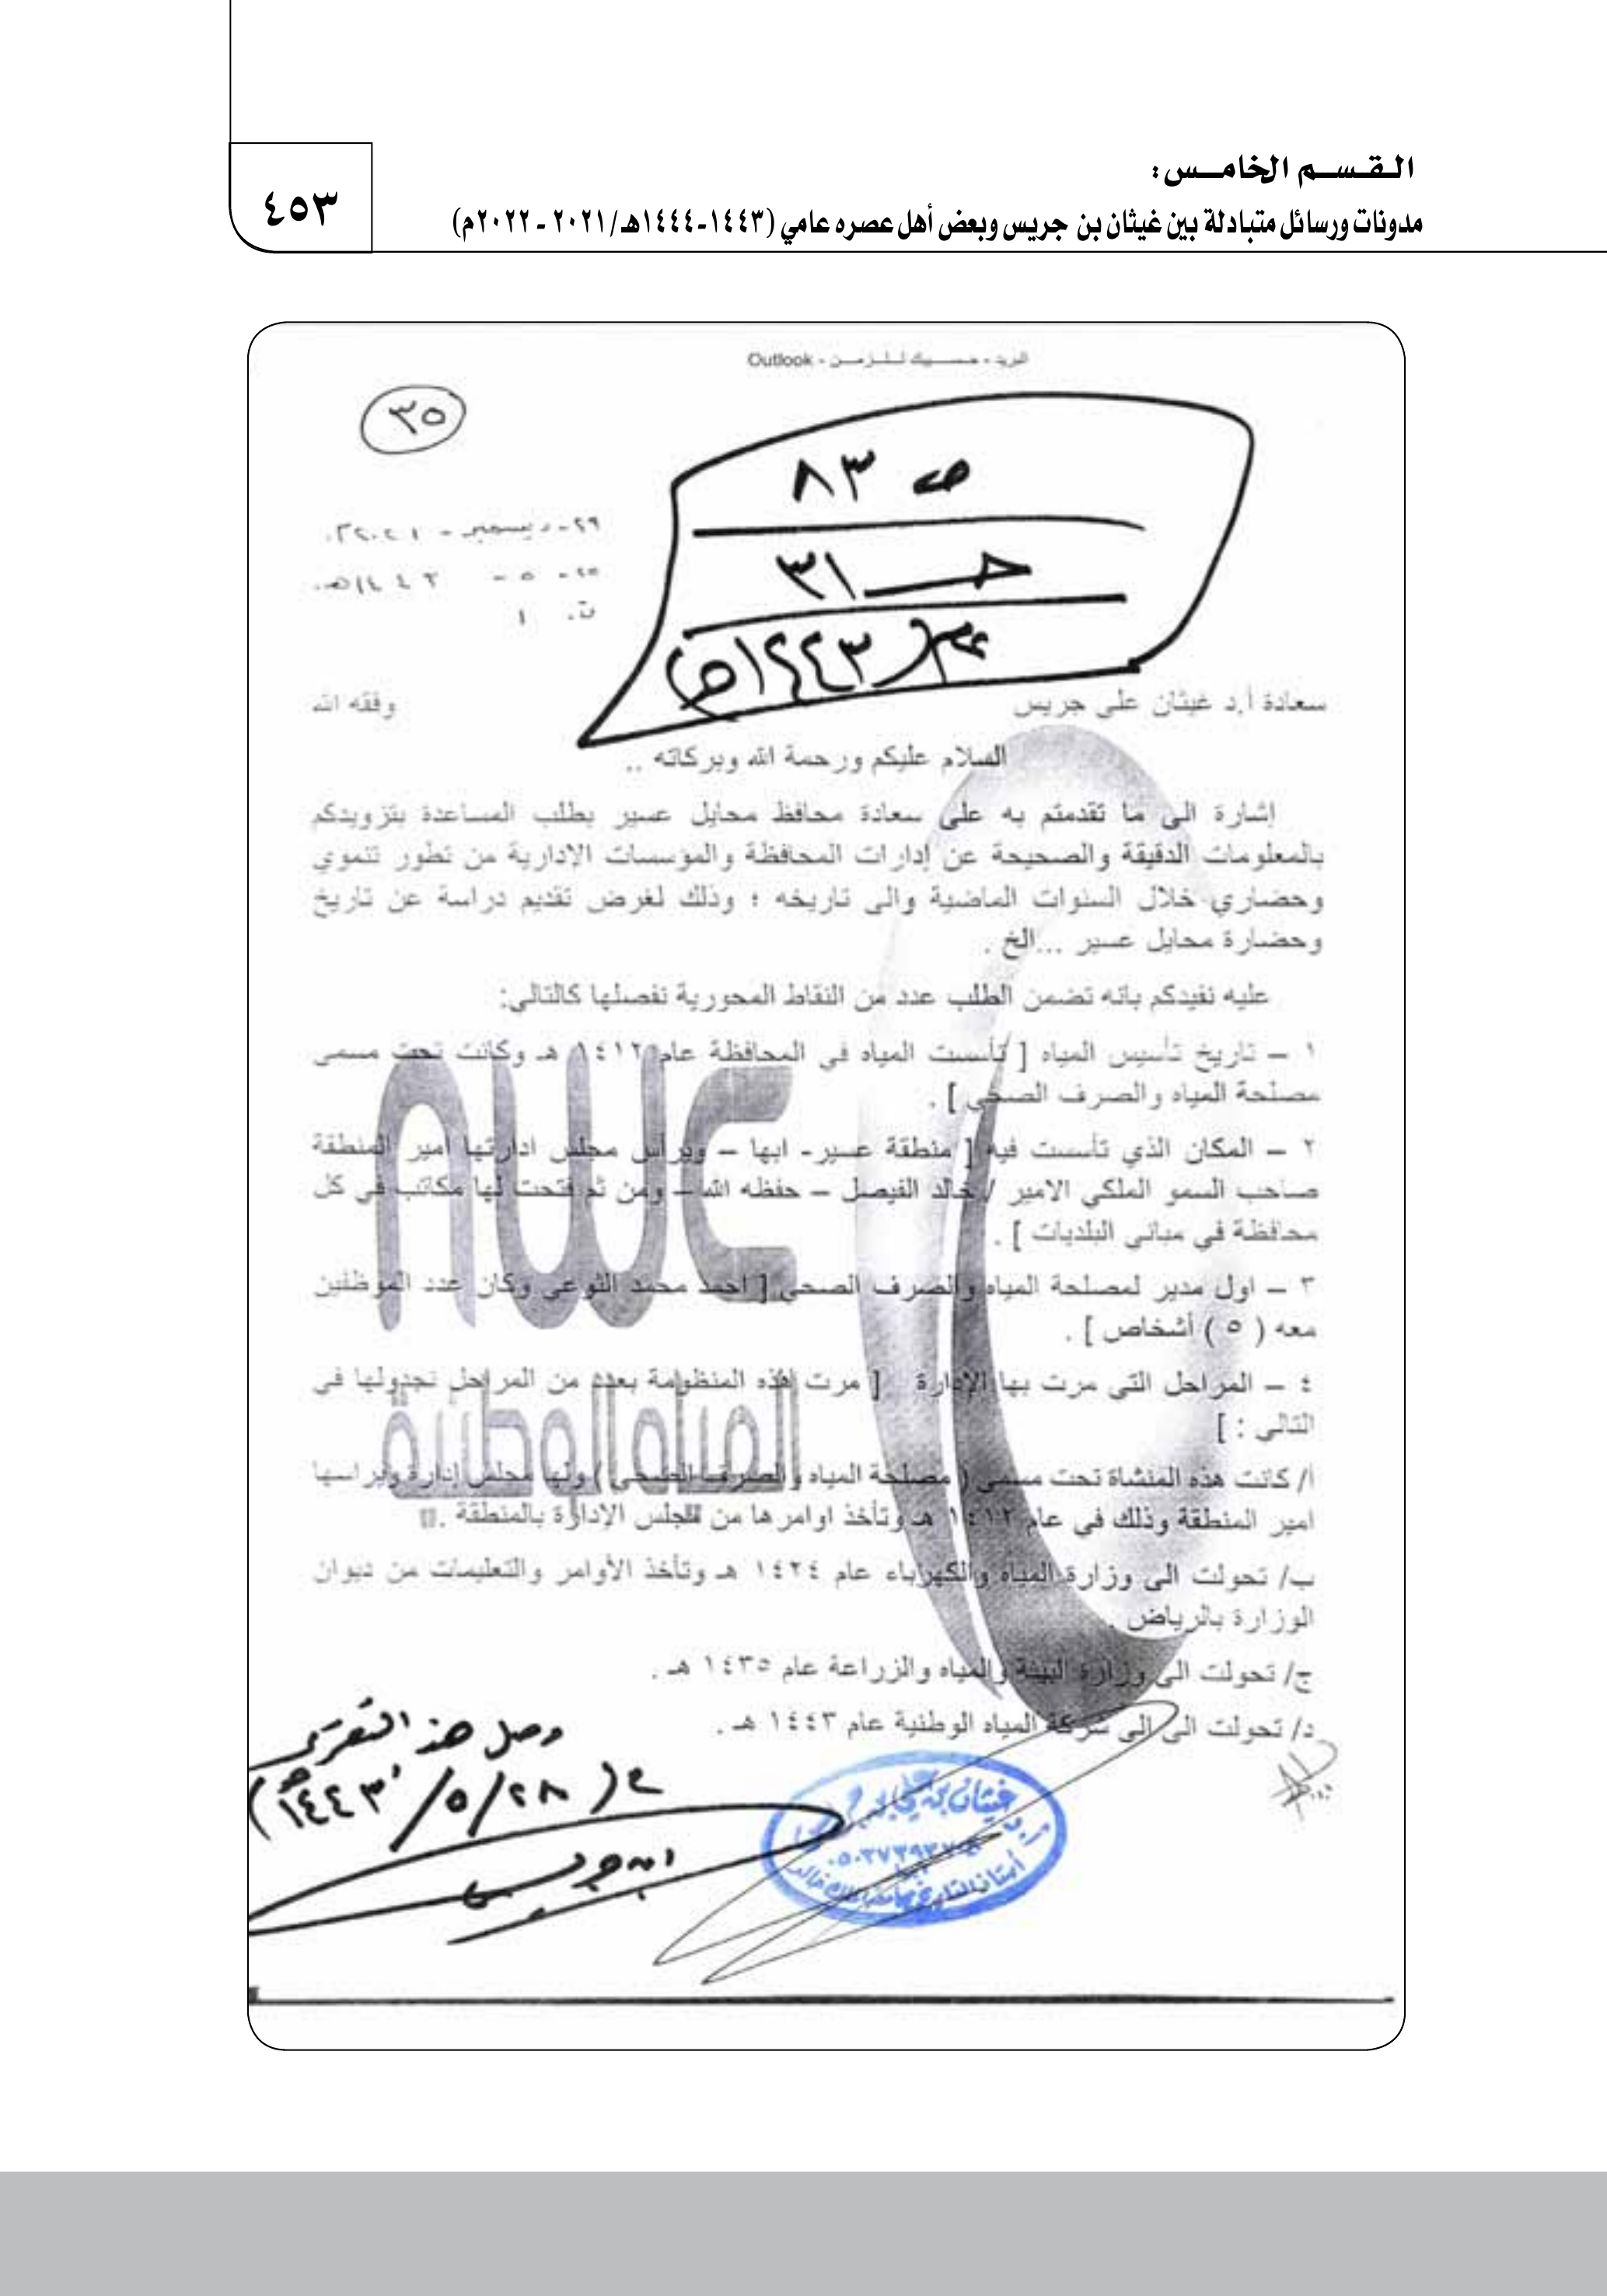 القسم الخامس:
مدونات ورسائل متبادلة بين غيثان بن جريس وبعض أهل عصره عامي (١٤٤٣-١٤٤٤هـ/٢٠٢١ - ٢٠٢٢م)
٤٥٣
البريد - حسبيك للزمن - Outlook
٣٥
ص ٨٣
جـ ٣١
١٤٤٣هـ)
٢٩ - ديسمبر - ٢٠٢١م.
٢٥ - ٥ - ١٤٤٣هـ.
ت. ١
سعادة أ.د غيثان على جريس وفقه الله
السلام عليكم ورحمة الله وبركاته ..
إشارة الى ما تقدمتم به على سعادة محافظ محايل عسير بطلب المساعدة بتزويدكم
بالمعلومات الدقيقة والصحيحة عن إدارات المحافظة والمؤسسات الإدارية من تطور تنموي
وحضاري خلال السنوات الماضية والى تاريخه ؛ وذلك لغرض تقديم دراسة عن تاريخ
وحضارة محايل عسير ...الخ .
عليه نفيدكم بانه تضمن الطلب عدد من النقاط المحورية نفصلها كالتالي:
١ – تاريخ تأسيس المياه [ تأسست المياه في المحافظة عام ١٤١٢ هـ وكانت تحت مسمى
مصلحة المياه والصرف الصحي ] .
٢ – المكان الذي تأسست فيه [ منطقة عسير- ابها – ويرأس مجلس ادارتها امير المنطقة
صاحب السمو الملكي الامير / خالد الفيصل – حفظه الله – ومن ثم فتحت لها مكاتب في كل
محافظة في مباني البلديات ] .
٣ – اول مدير لمصلحة المياه والصرف الصحي [ احمد محمد النوعي وكان عدد الموظفين
معه ( ٥ ) أشخاص ] .
٤ – المراحل التي مرت بها الإدارة [ مرت هذه المنظومة بعدد من المراحل نجدولها في
التالي : ]
أ/ كانت هذه المنشاة تحت مسمى ( مصلحة المياه والصرف الصحي ) ولها مجلس إدارة ويراسها
امير المنطقة وذلك في عام ١٤١٢ هـ وتأخذ اوامرها من مجلس الإدارة بالمنطقة .
ب/ تحولت الى وزارة المياه والكهرباء عام ١٤٢٤ هـ وتأخذ الأوامر والتعليمات من ديوان
الوزارة بالرياض .
ج/ تحولت الى وزارة البيئة والمياه والزراعة عام ١٤٣٥ هـ .
د/ تحولت الى الى شركة المياه الوطنية عام ١٤٤٣ هـ .
nwc
المياه الوطنية
وصل هذا التقرير
في (٢٨/٥/١٤٤٣هـ)
ابن جريس
أ.د. غيثان بن علي بن جريس
أستاذ التاريخ بجامعة الملك خالد